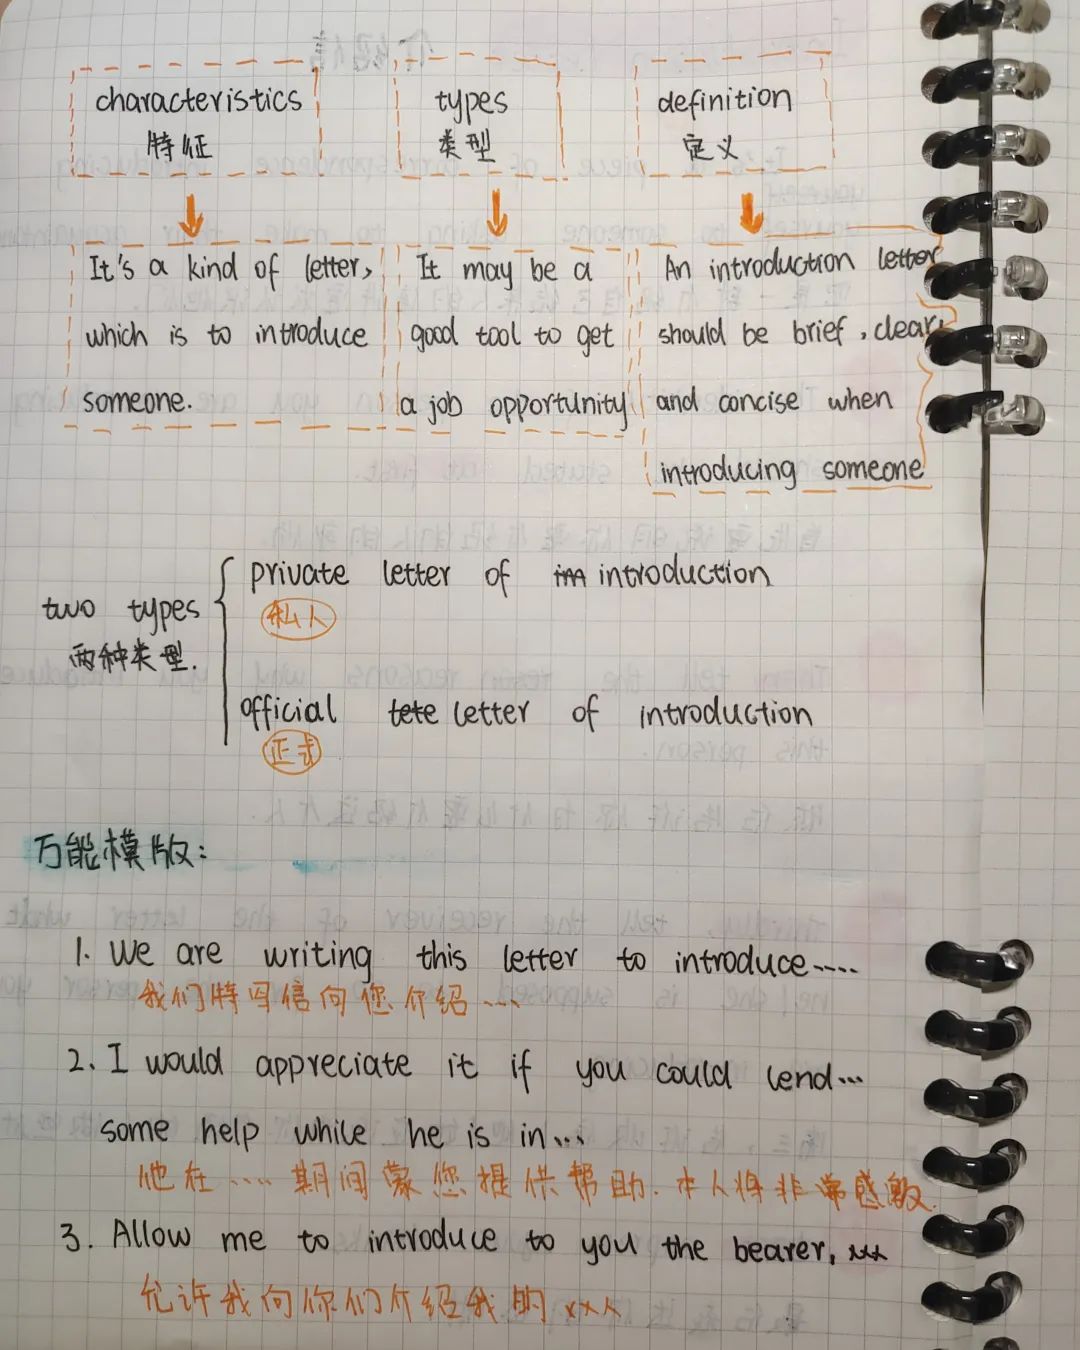 characteristics
特征
types
类型
definition
定义
It's a kind of letter,
which is to introduce
someone.
It may be a
good tool to get
a job opportunity
An introduction letter
should be brief, clear,
and concise when
introducing someone
two types
两种类型.
private letter of introduction
私人
official letter of introduction
正式
万能模版:
1. We are writing this letter to introduce.....
我们特写信向您介绍....
2. I would appreciate it if you could lend...
some help while he is in...
他在.....期间蒙您提供帮助.本人将非常感激.
3. Allow me to introduce to you the bearer, xxx
允许我向你们介绍我的xxx